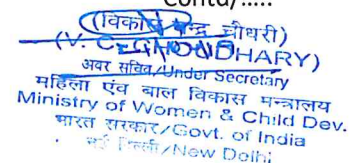 Contd/.....
(विकास चन्द्र चौधरी)
(V. C. CHOUDHARY)
अवर सचिव/Under Secretary
महिला एंव बाल विकास मन्त्रालय
Ministry of Women & Child Dev.
भारत सरकार/Govt. of India
नई दिल्ली/New Delhi